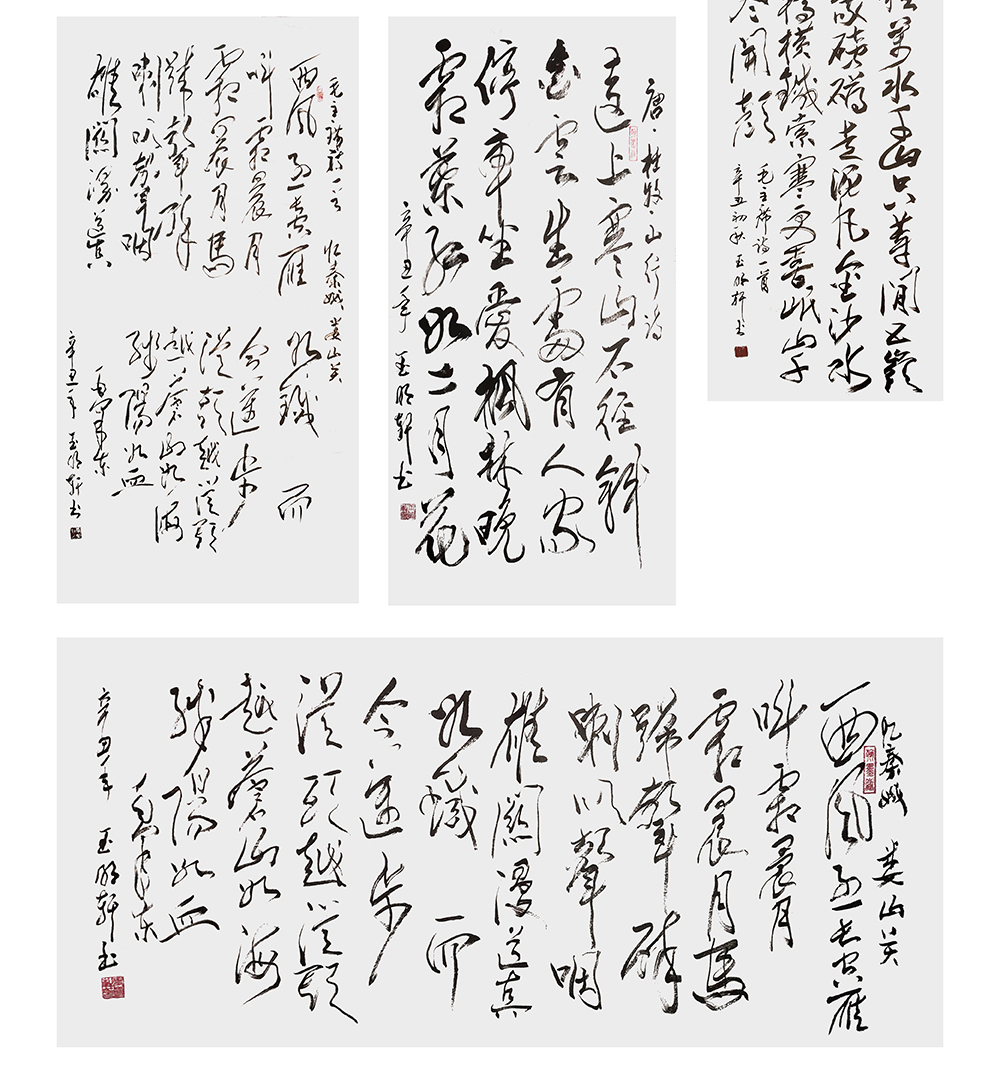 毛主席詩一首 忆秦娥 娄山关
西风烈長空雁
叫霜晨月
霜晨月馬
蹄聲碎
喇叭聲咽
雄關漫道真
如鐵 而
今邁步
從頭越從頭
越蒼山如海
殘陽如血
毛泽东
辛丑年 玉明轩书
唐·杜牧·山行诗
遠上寒山石徑斜
白云生處有人家
停車坐愛楓林晚
霜葉紅如二月花
辛丑年 玉明轩书
萬水千山只等閒五嶺
磅礴走泥丸金沙水
橋橫鐵索寒更喜岷山千
盡開顏
毛主席诗一首
辛丑初秋玉明轩书
忆秦娥 娄山关
西風烈長空雁
叫霜晨月
霜晨月馬
蹄聲碎
喇叭聲咽
雄關漫道真
如鐵 而
今邁步
從頭越從頭
越蒼山如海
殘陽如血
毛泽东
辛丑年 玉明轩书